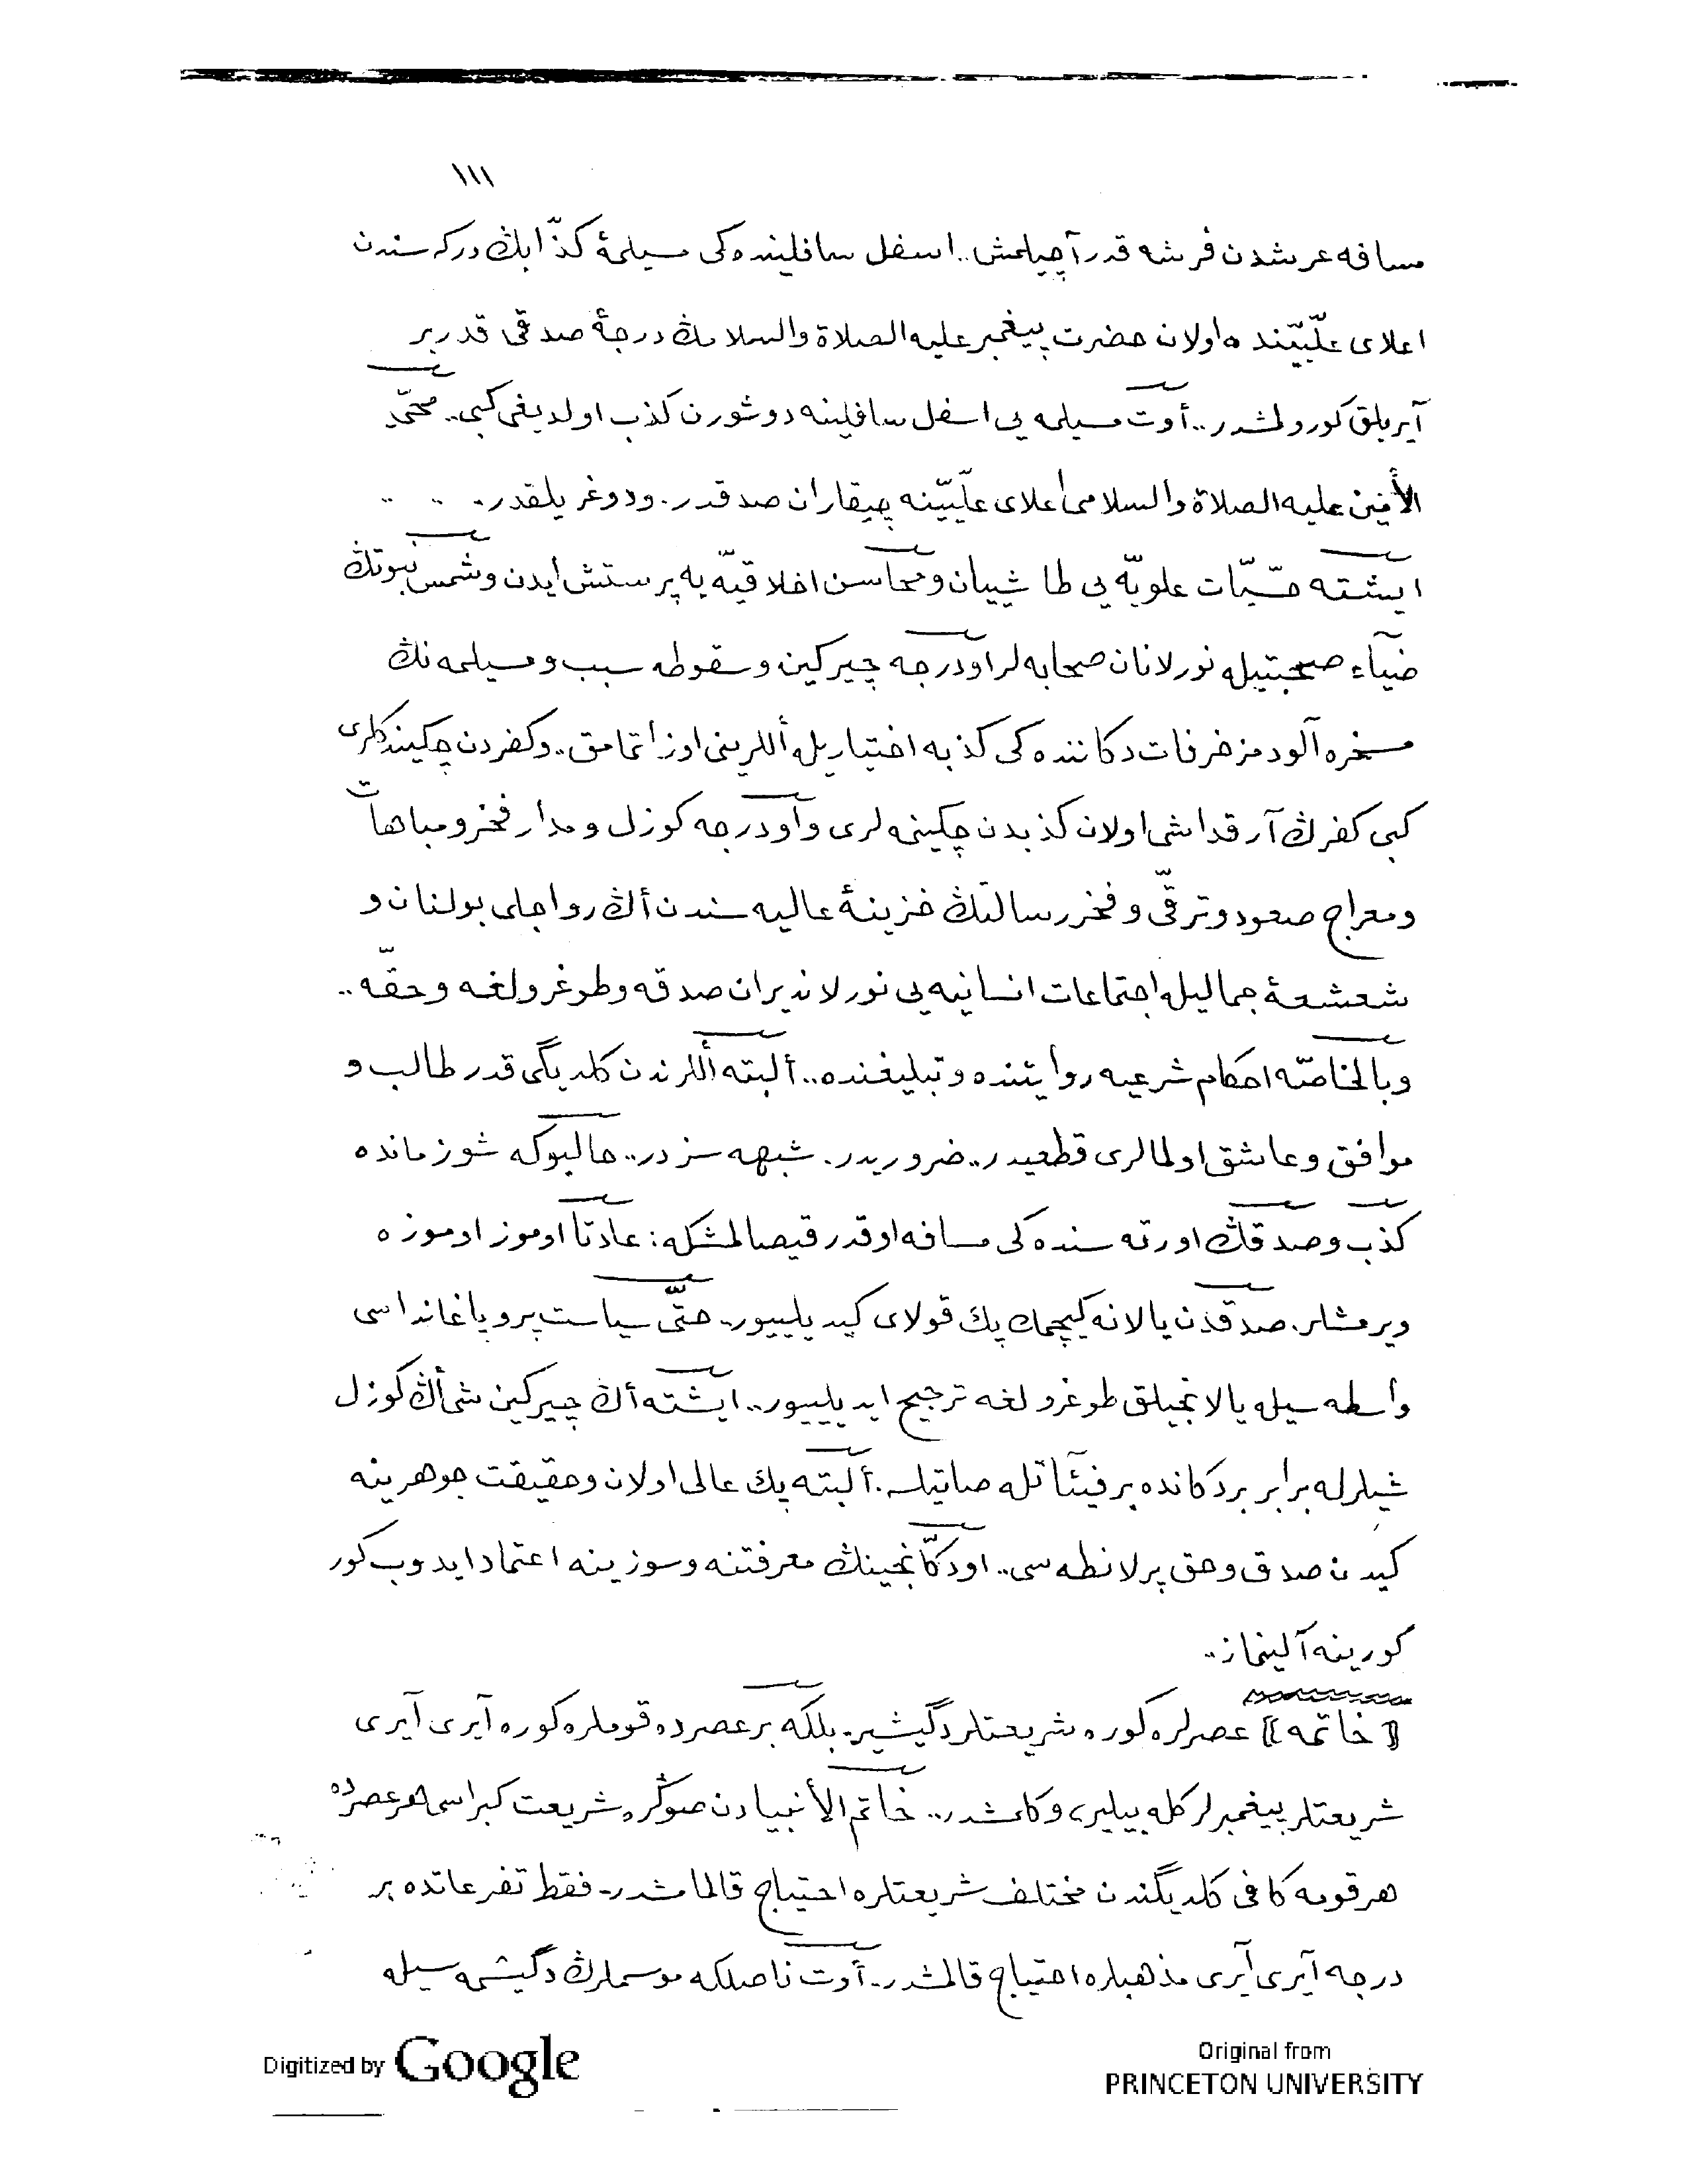 ١١١
مسافه عرشدن فرشه قدر آچيلمش.. اسفل سافلينده كى مسيلمۀ كذّابڭ دركه سندن
اعلاى علّيّينده اولان حضرت پيغمبر عليه الصلاة والسلامڭ درجۀ صدقى قدر بر
آيريلق كورولمشدر.. أوت مسيلمه يى اسفل سافلينه دوشورن كذب اولديغى كبى.. محمّد
الأمين عليه الصلاة والسلامى أعلاى علّيّينه چيقاران صدقدر. ودوغريلقدر. .. ..
ايشته حسّيّات علويّه يى طاشييان ومحاسن اخلاقيّه يه پرستش ايدن وشمس نبوتڭ
ضيآء صحبتيله نورلانان صحابه لر اودرجه چيركين وسقوطه سبب ومسيلمه نڭ
مسخره آلود مزخرفات دكاننده كى كذبه اختياريله أللرينى اوزاتمامق.. وكفردن چكيندكلرى
كبى كفرڭ آرقداشى اولان كذبدن چكينمه لرى و أودرجه كوزل ومدار فخر ومباهات
ومعراج صعود وترقّى و فخر رسالتڭ خزينۀ عاليه سندن أڭ رواجلى بولنان و
شعشعۀ جماليله اجتماعات انسانيه يى نورلانديران صدقه وطوغرولغه وحقّه ..
وبالخاصّه احكام شرعيه روايتنده وتبليغنده.. ألبته أللرندن كلديگى قدر طالب و
موافق وعاشق اولمالرى قطعيدر.. ضروريدر. شبهه سزدر.. حالبوكه شوزمانده
كذب وصدقڭ اورته سنده كى مسافه اوقدر قيصالمشكه: عادتا اوموز اوموزه
ويرمشلر. صدقدن يالانه كيچمك پك قولاى كيديلييور. حتّى سياست پروپاغانداسى
واسطه سيله يالانجيلق طوغرولغه ترجيح ايديلييور.. ايشته أڭ چيركين شى أڭ كوزل
شيلرله برابر بر دكانده بر فيئاتله صاتيلسه. ألبته پك عالى اولان وحقيقت جوهرينه
كيدن صدق وحق پرلانطه سى.. اودكّانجينڭ معرفتنه وسوزينه اعتماد ايدوب كور
كورينه آلينماز..
((خاتمه)) عصرلره كوره شريعتلر دگيشير. بلكه بر عصرده قوملره كوره آيرى آيرى
شريعتلر پيغمبرلر كله بيلير، وكلمشدر.. خاتم الأنبيادن صوڭره شريعت كبراسى هر عصرده
هر قومه كافى كلديگندن مختلف شريعتلره احتياج قالمامشدر. فقط تفرعاتده بر
درجه آيرى آيرى مذهبلره احتياج قالمشدر. أوت ناصلكه موسملرڭ دگيشمه سيله
Digitized by Google
Original from
PRINCETON UNIVERSITY